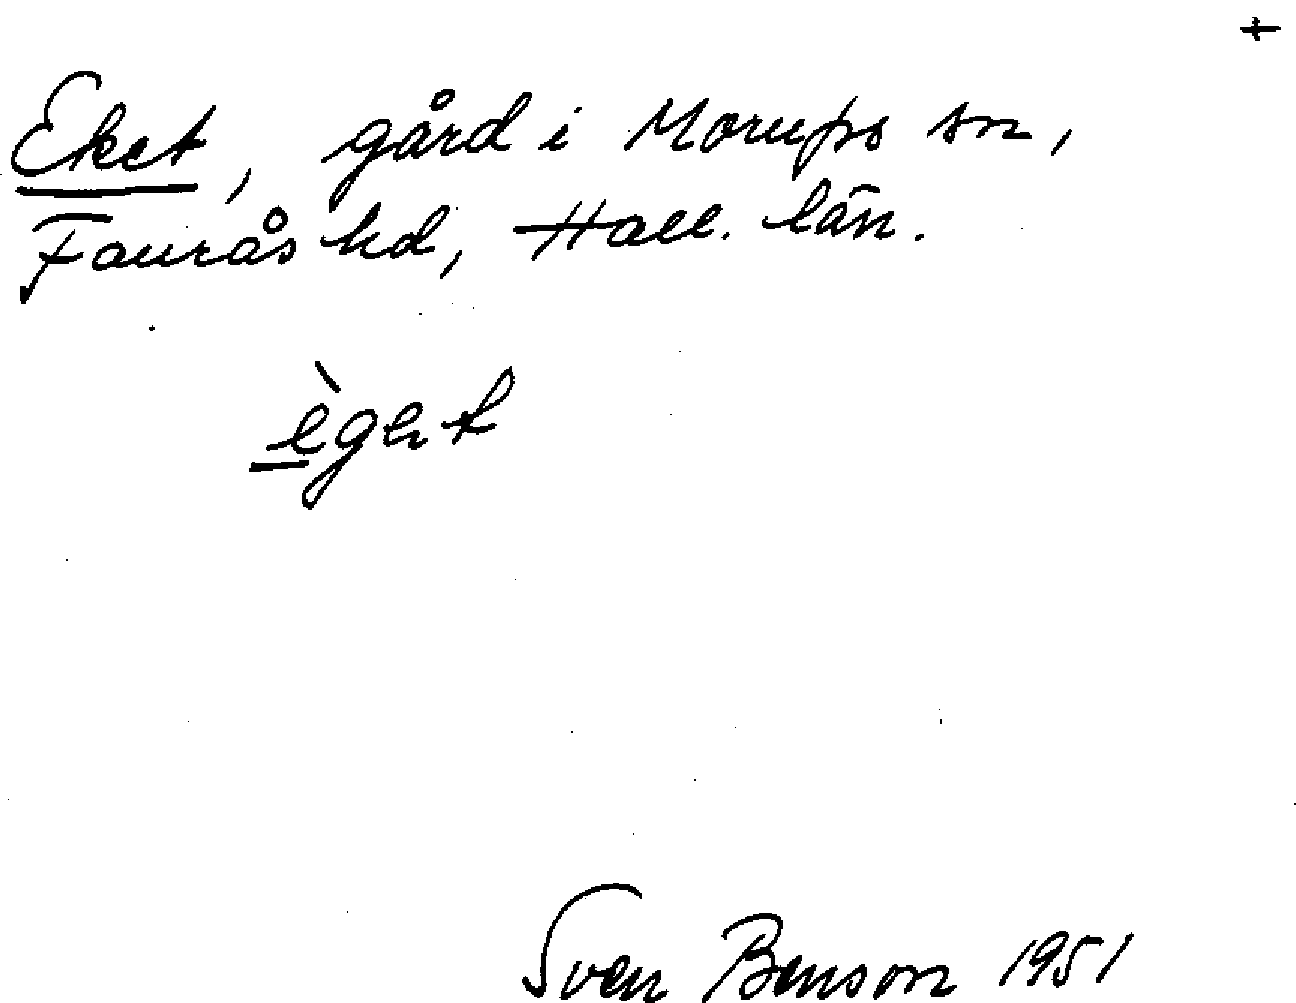 +
Eket, gård i Morups sn,
Faurås hd, Hall. län.
ègət
Sven Benson 1951